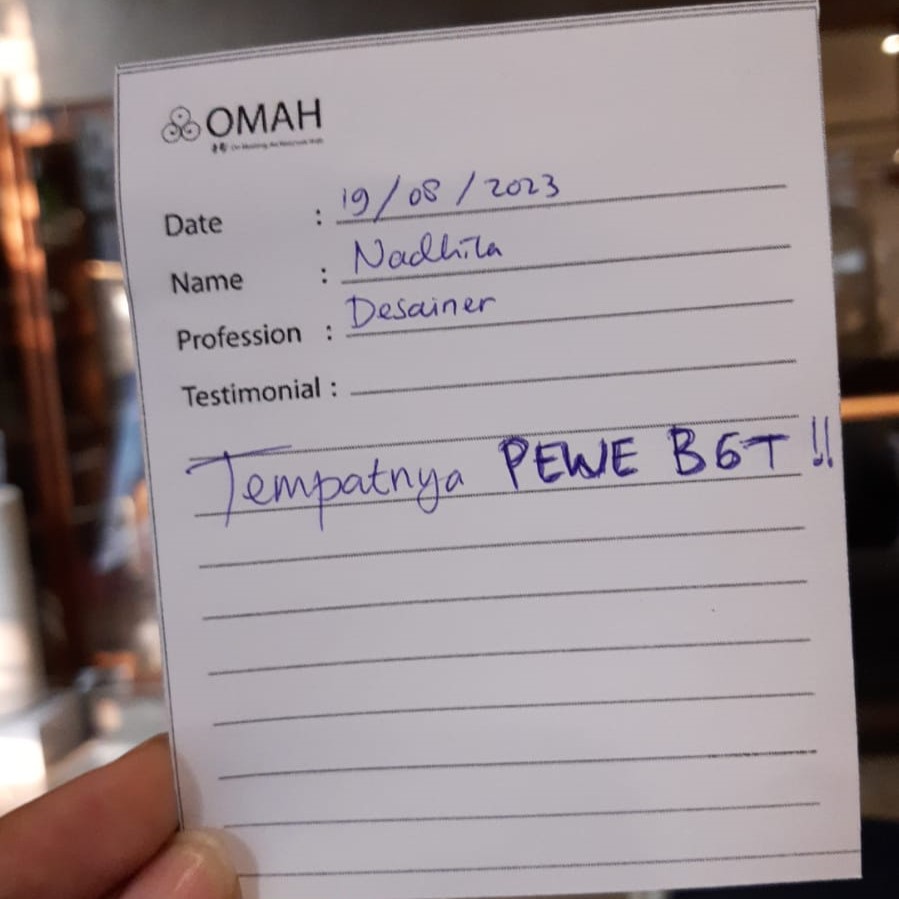 OMAH
Date : 19/08/2023
Name : Nadhila
Profession : Desainer
Testimonial :
Tempatnya PEWE BGT!!